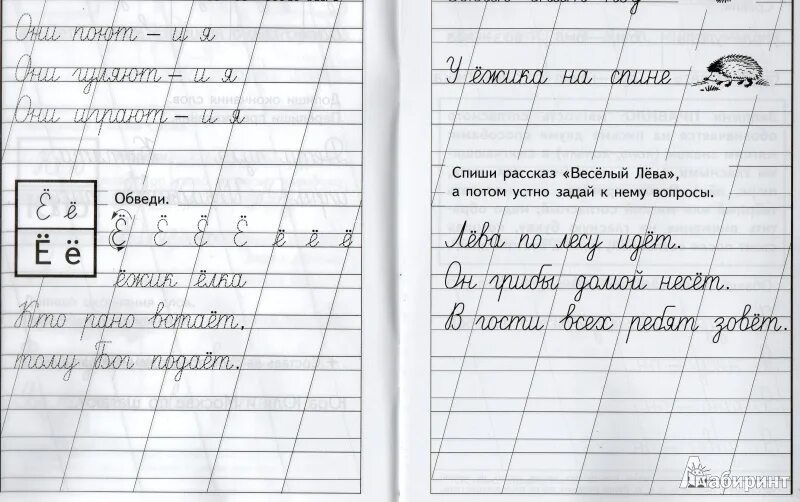 Они поют – и я
Они гуляют – и я
Они играют – и я
Ё ё
Ё ё
Обведи.
Ё Ё Ё Ё ё ё ё
ёжик ёлка
Кто рано встаёт,
тому Бог подаёт.
У ёжика на спине
Спиши рассказ «Весёлый Лёва»,
а потом устно задай к нему вопросы.
Лёва по лесу идёт.
Он грибы домой несёт.
В гости всех ребят зовёт.
Лабиринт